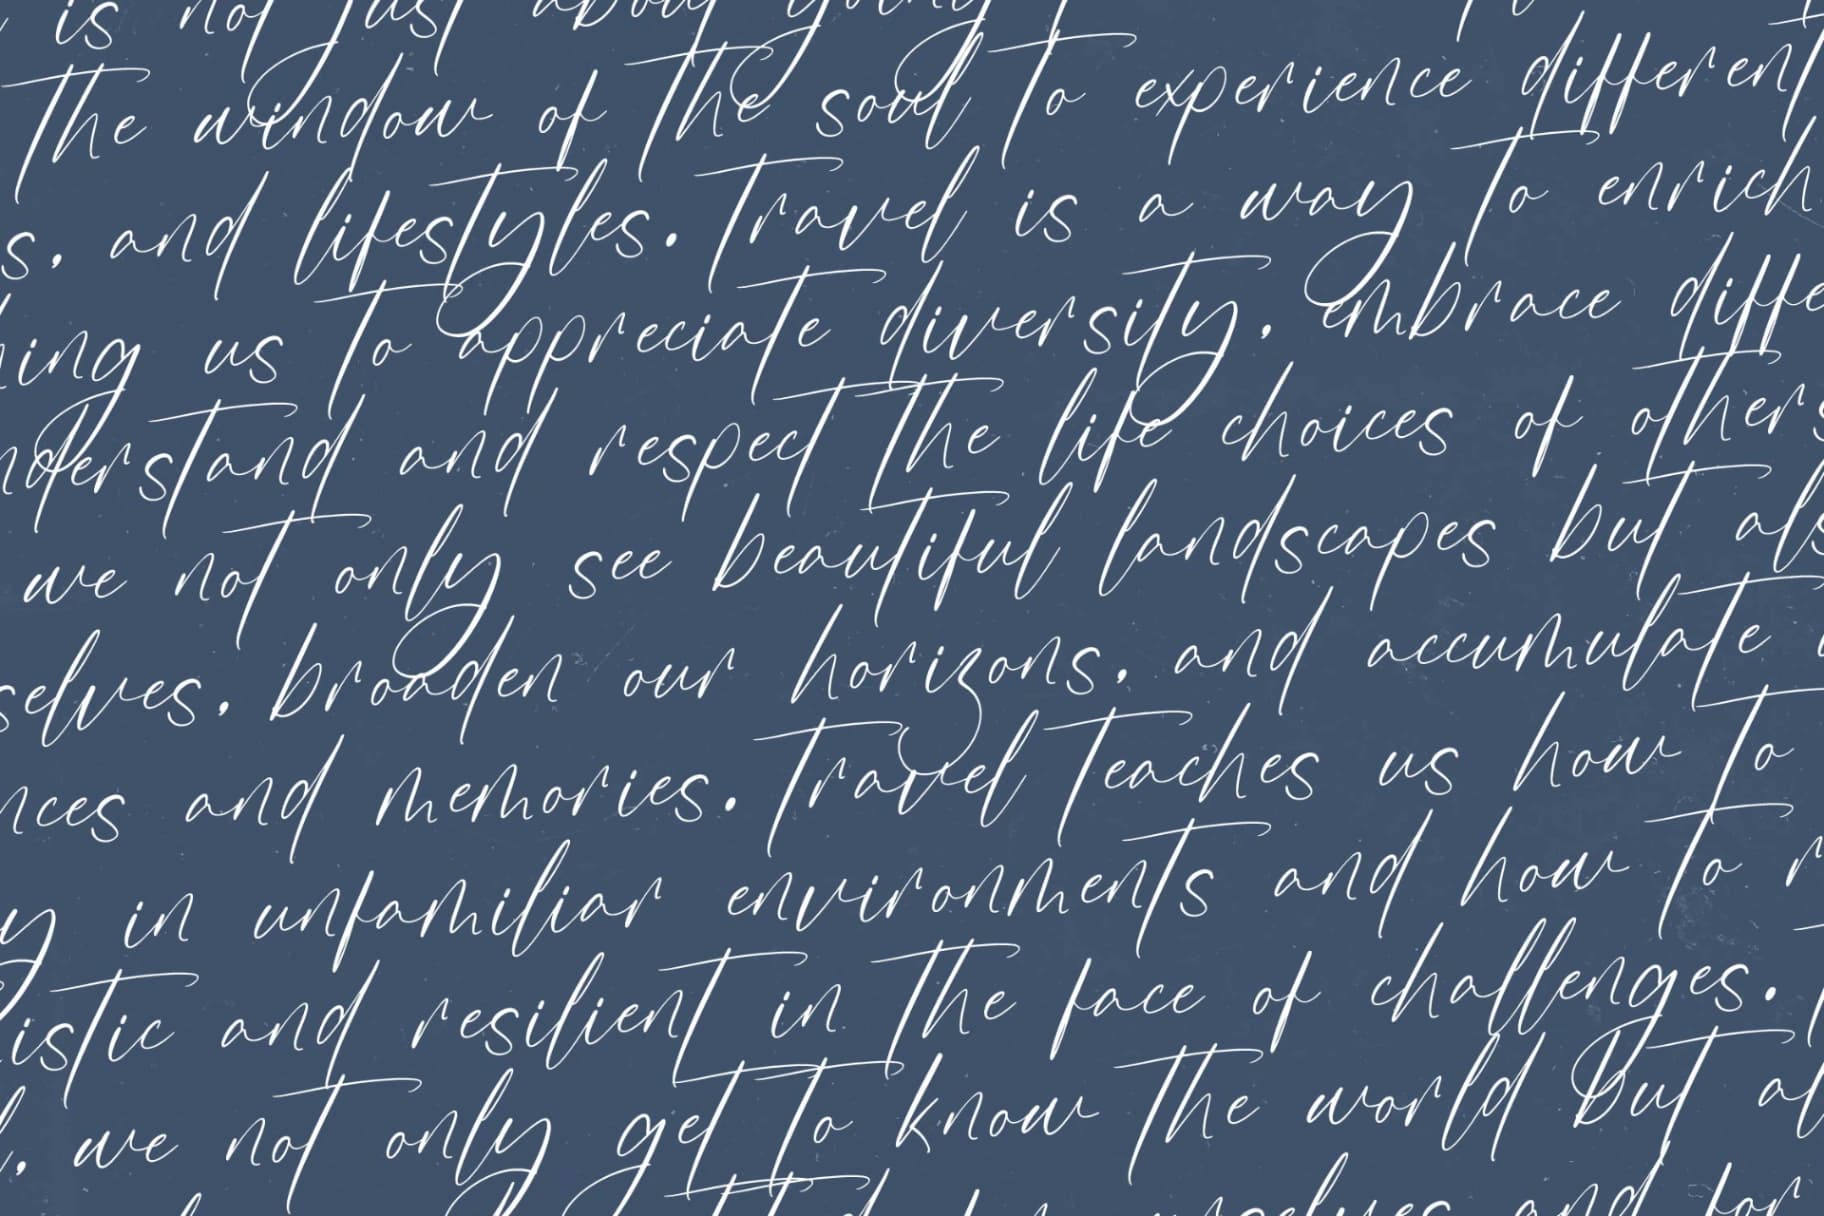 is not just about going
the window of the soul to experience different
s, and lifestyles. Travel is a way to enrich
ing us to appreciate diversity, embrace diffe
nderstand and respect the life choices of others
we not only see beautiful landscapes but als
selves, broaden our horizons, and accumulate
nces and memories. Travel teaches us how to
y in unfamiliar environments and how to r
istic and resilient in the face of challenges.
l, we not only get to know the world but al
and for